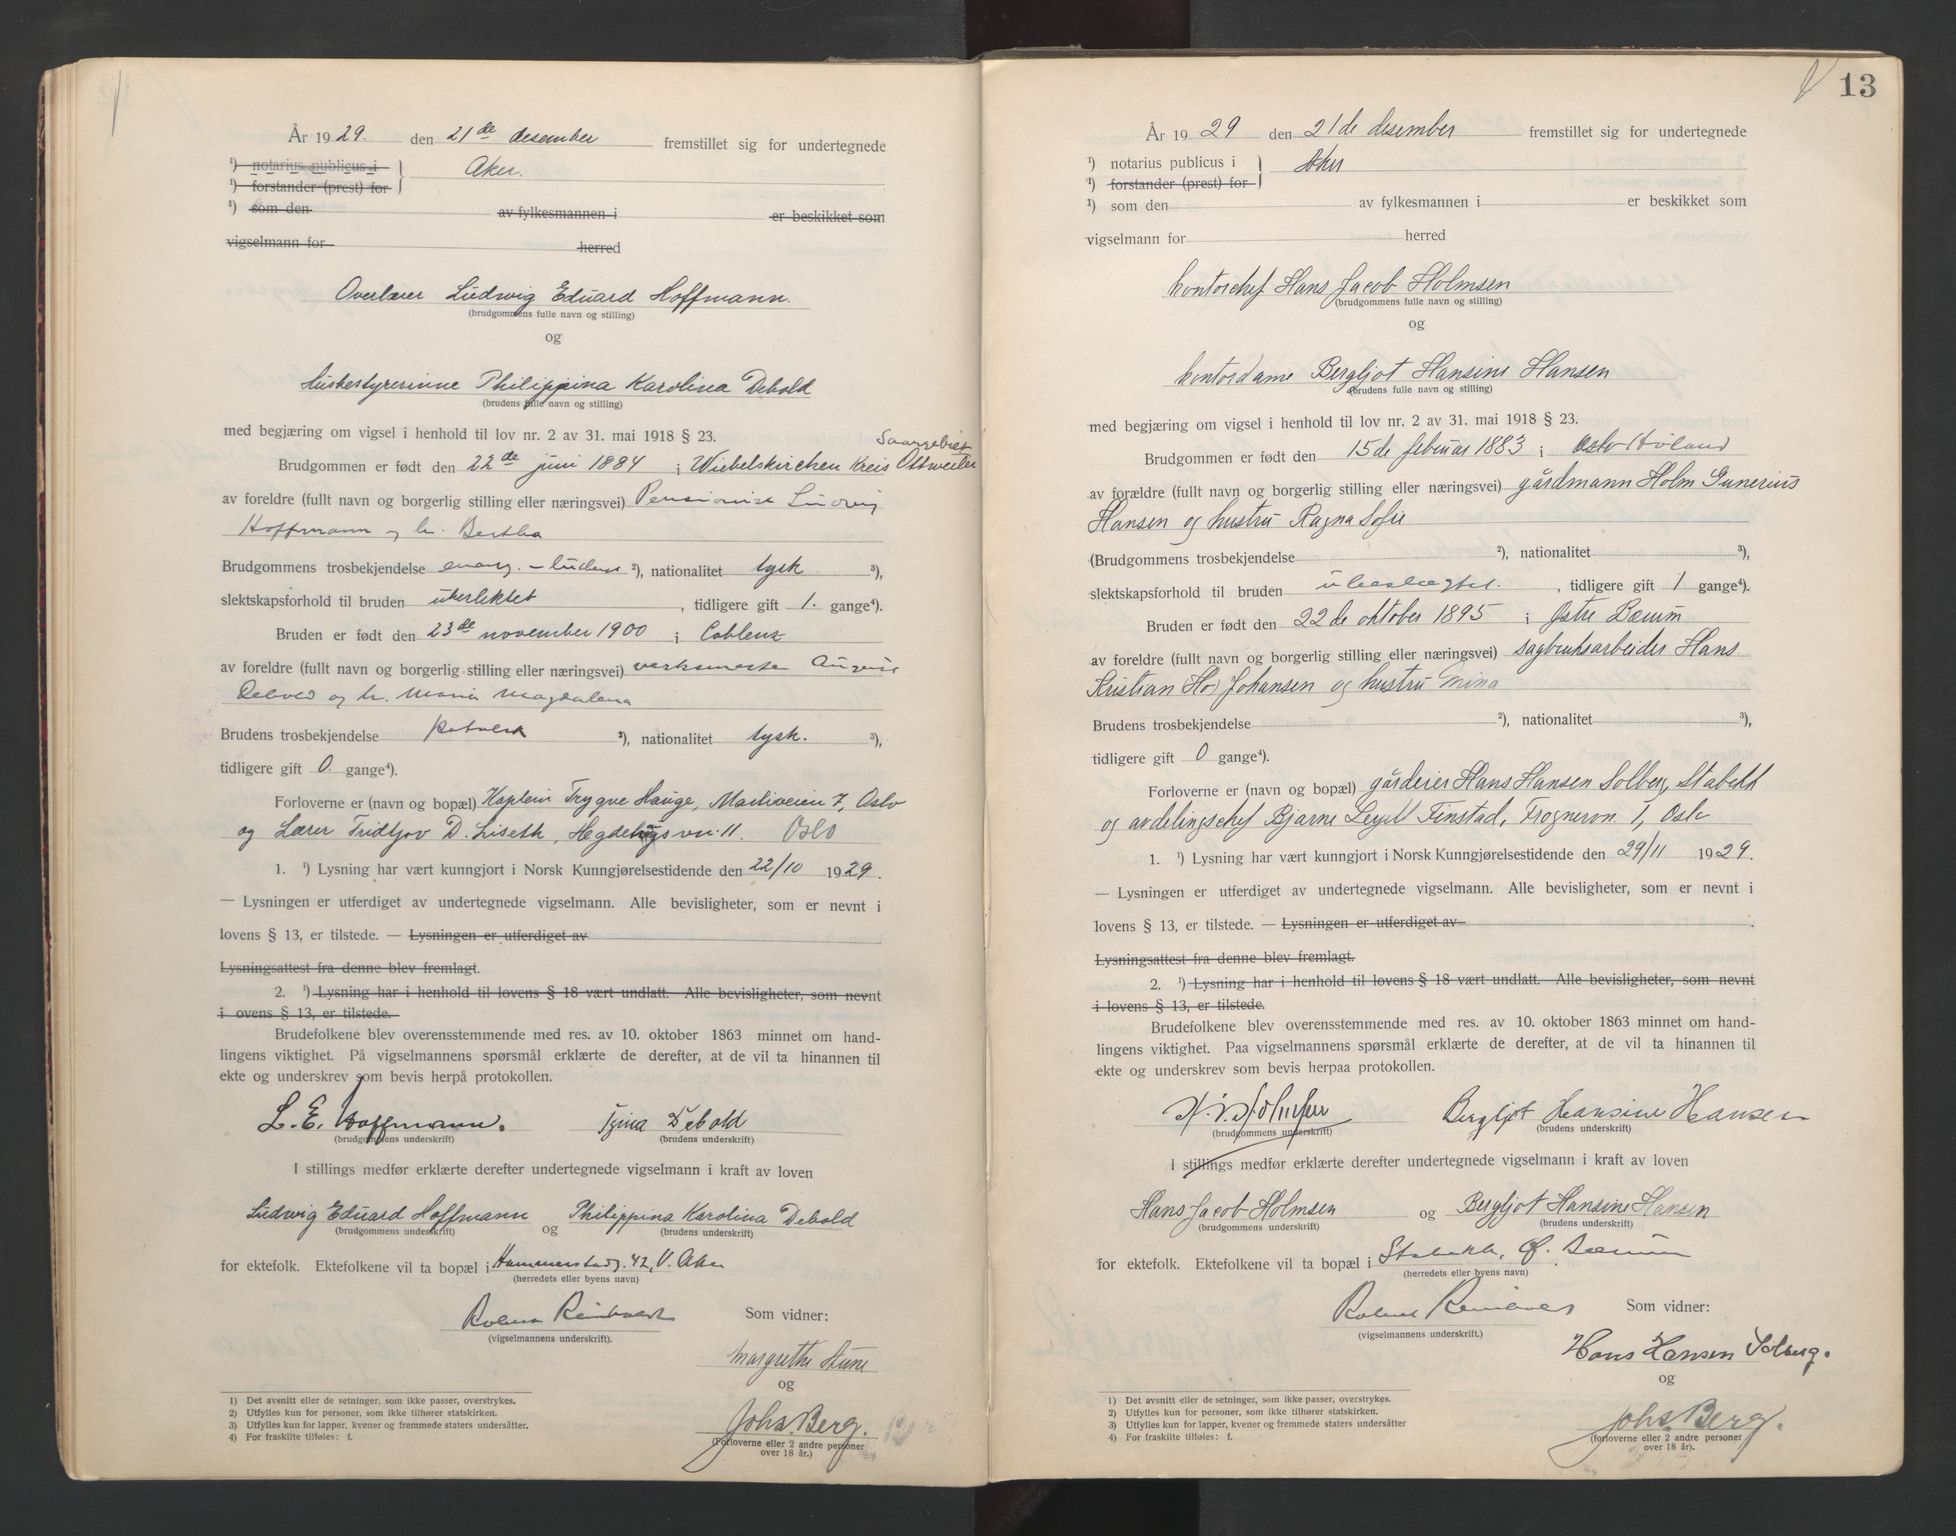 År 1929. den 21de desember fremstillet sig for undertegnede
¹) notarius publicus i
Aker.
¹) forstander (prest) for
¹) som den av fylkesmannen i er beskikket som
vigselmann for herred
Overlærer Ludwig Eduard Hoffmann.
(brudgommens fulle navn og stilling)
og
Husbestyrerinne Philippina Karolina Debold
(brudens fulle navn og stilling)
med begjæring om vigsel i henhold til lov nr. 2 av 31. mai 1918 § 23.
Saargebiet
Brudgommen er født den 22de juni 1884 i Wiebelskirchen Kreis Ottweiler
av foreldre (fullt navn og borgerlig stilling eller næringsvei) Pensionist Ludvig
Hoffmann og h. Bertha
Brudgommens trosbekjendelse evang. – luthersk ²), nationalitet tysk ³),
slektskapsforhold til bruden ubeslektet, tidligere gift 1. gange⁴).
Bruden er født den 23de november 1900 i Coblenz
av foreldre (fullt navn og borgerlig stilling eller næringsvei) verksmester August
Debold og h. Maria Magdalena
Brudens trosbekjendelse katolsk ²), nationalitet tysk. ³),
tidligere gift 0. gange⁴).
Forloverne er (navn og bopæl) Kaptein Trygve Hauge, Marliveien 7, Oslo
og Lærer Fridtjov D. Liseth, Hegdehaugsvn. 11. Oslo
1. ¹) Lysning har vært kunngjort i Norsk Kunngjørelsestidende den 22/10 1929.
— Lysningen er utferdiget av undertegnede vigselmann. Alle bevisligheter, som er nevnt i
lovens § 13, er tilstede. — Lysningen er utferdiget av
Lysningsattest fra denne blev fremlagt.
2. ¹) Lysning har i henhold til lovens § 18 vært undlatt. Alle bevisligheter, som nevnt
i ovens § 13, er tilstede.
Brudefolkene blev overensstemmende med res. av 10. oktober 1863 minnet om hand-
lingens viktighet. På vigselmannens spørsmål erklærte de derefter, at de vil ta hinannen til
ekte og underskrev som bevis herpå protokollen.
L. E. Hoffmann. Debold
(brudgommens underskrift) (brudens underskrift)
I stillings medfør erklærte derefter undertegnede vigselmann i kraft av loven
Ludwig Eduard Hoffmann og Philippina Karolina Debold
(brudgommens underskrift) (brudens underskrift)
for ektefolk. Ektefolkene vil ta bopæl i Hammerstadg. 42, V. Aker
(herredets eller byens navn)
Som vidner:
(vigselmannens underskrift).
Margrethe
og
Johs. Berg.
(Forloverne eller 2 andre personer
over 18 år.)
1) Det avsnitt eller de setninger, som ikke passer, overstrykes.
2) Utfylles kun for personer, som ikke tilhører statskirken.
3) Utfylles kun for lapper, kvener og fremmede staters undersåtter.
4) For fraskilte tilføies: f.
13
År 1929 den 21de desember fremstillet sig for undertegnede
¹) notarius publicus i
Aker
¹) forstander (prest) for
¹) som den av fylkesmannen i er beskikket som
vigselmann for herred
kontorchef Hans Jacob Holmsen
(brudgommens fulle navn og stilling)
og
kontordame Bergljot Hansine Hansen
(brudens fulle navn og stilling)
med begjæring om vigsel i henhold til lov nr. 2 av 31. mai 1918 § 23.
Brudgommen er født den 15de februar 1883 i Høland
av forældre (fullt navn og borgerlig stilling eller næringsvei) gårdmann Holm Gunerius
Hansen og hustru Ragna Sofie
(Brudgommens trosbekjendelse ²), nationalitet ³),
slektskapsforhold til bruden ubeslægtet., tidligere gift 1 gange⁴).
Bruden er født den 22de oktober 1895 i Østre Bærum
av foreldre (fullt navn og borgerlig stilling eller næringsvei) sagbruksarbeider Hans
Kristian Johansen og hustru Mina
Brudens trosbekjendelse ²), nationalitet ³),
tidligere gift 0 gange⁴).
Forloverne er (navn og bopæl) gårdeier Hans Hansen Solberg, Stabekk
og avdelingschef Bjarne Finstad, Frognervn. 1, Oslo
1. ¹) Lysning har vært kunngjort i Norsk Kunngjørelsestidende den 29/11 1929.
— Lysningen er utferdiget av undertegnede vigselmann. Alle bevisligheter, som er nevnt i
lovens § 13, er tilstede. — Lysningen er utferdiget av
Lysningsattest fra denne blev fremlagt.
2. ¹) Lysning har i henhold til lovens § 18 vært undlatt. Alle bevisligheter, som nevnt
i lovens § 13, er tilstede.
Brudefolkene blev overensstemmende med res. av 10. oktober 1863 minnet om hand-
lingens viktighet. Paa vigselmannens spørsmål erklærte de derefter, at de vil ta hinannen til
ekte og underskrev som bevis herpaa protokollen.
H. J. Holmsen Bergljot Hansine Hansen
(brudgommens underskrift) (brudens underskrift)
I stillings medfør erklærte derefter undertegnede vigselmann i kraft av loven
Hans Jacob Holmsen og Bergljot Hansine Hansen
(brudgommens underskrift) (brudens underskrift)
for ektefolk. Ektefolkene vil ta bopæl i Stabekk, Ø. Bærum
(herredets eller byens navn)
Som vidner:
(vigselmannens underskrift.)
Hans Hansen Solberg.
og
Johs. Berg.
(forloverne eller 2 andre personer
over 18 år).
1) Det avsnitt eller de setninger, som ikke passer, overstrykes.
2) Utfylles kun for personer, som ikke tilhører statskirken.
3) Utfylles kun for lapper, kvener og fremmede staters undersåtter
4) For fraskilte tilføies: f.